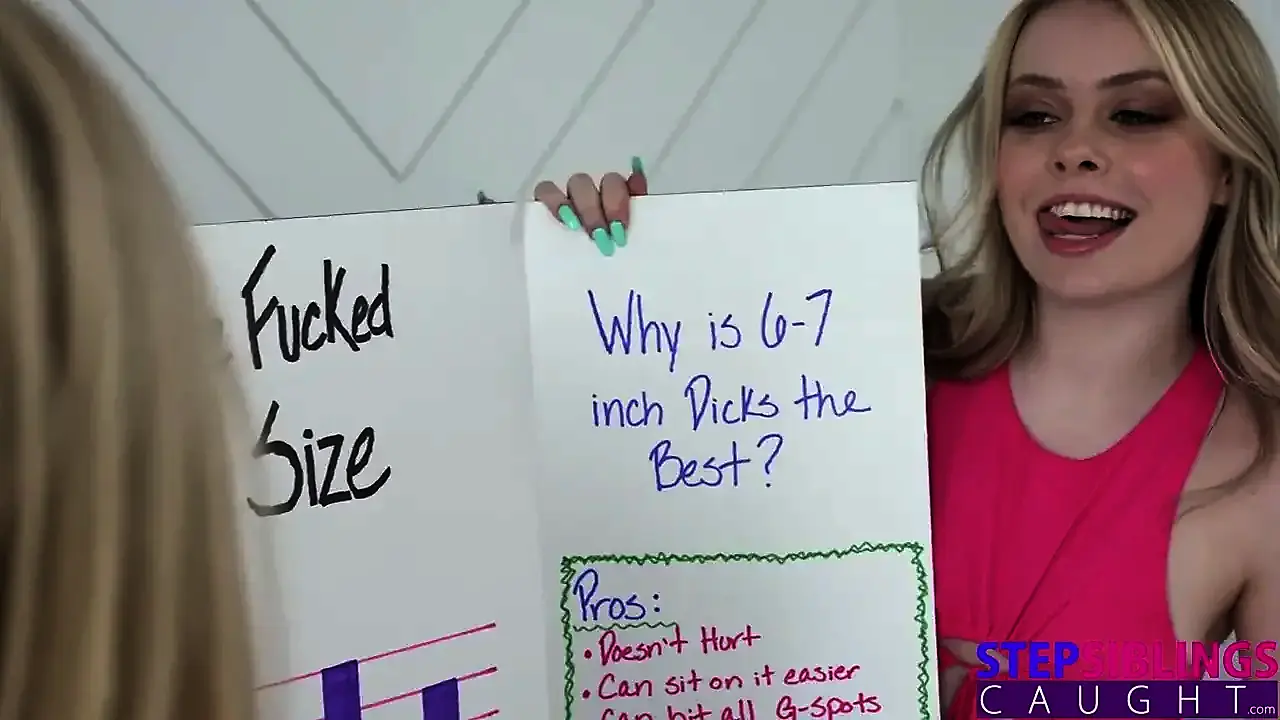 Fucked
Size
Why is 6-7
inch Dicks the
Best?
Pros:
• Doesn't Hurt
• Can sit on it easier
Can hit all G-spots
STEPSIBLINGS
CAUGHT.com